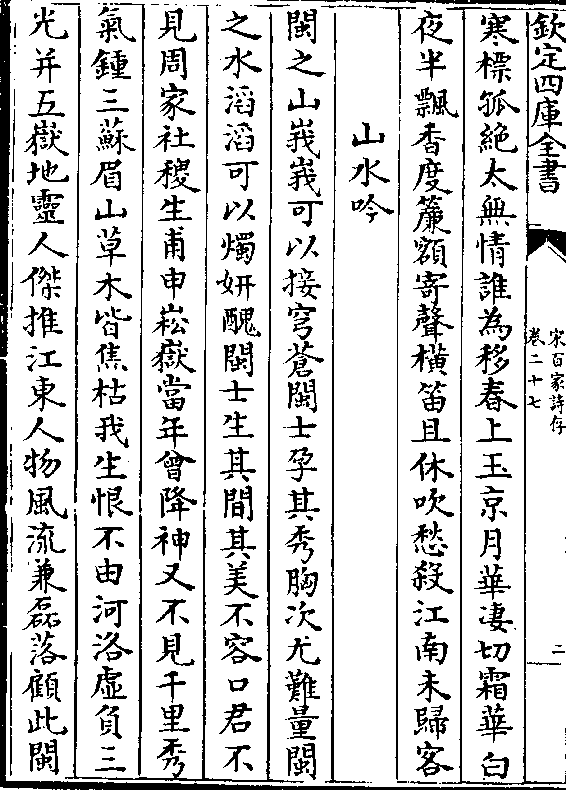 欽定四庫全書
宋百家詩存
卷二十七
二
寒標孤絶太無情誰為移春上玉京月華凄切霜華白
夜半飄香度簾額寄聲橫笛且休吹愁殺江南未歸客
山水吟
閩之山峩峩可以接穹蒼閩士孕其秀胸次尤難量閩
之水滔滔可以燭妍醜閩士生其間其美不容口君不
見周家社稷生甫申崧嶽當年曾降神又不見千里秀
氣鍾三蘇眉山草木皆焦枯我生恨不由河洛虛負三
光并五嶽地靈人傑推江東人物風流兼磊落顧此閩